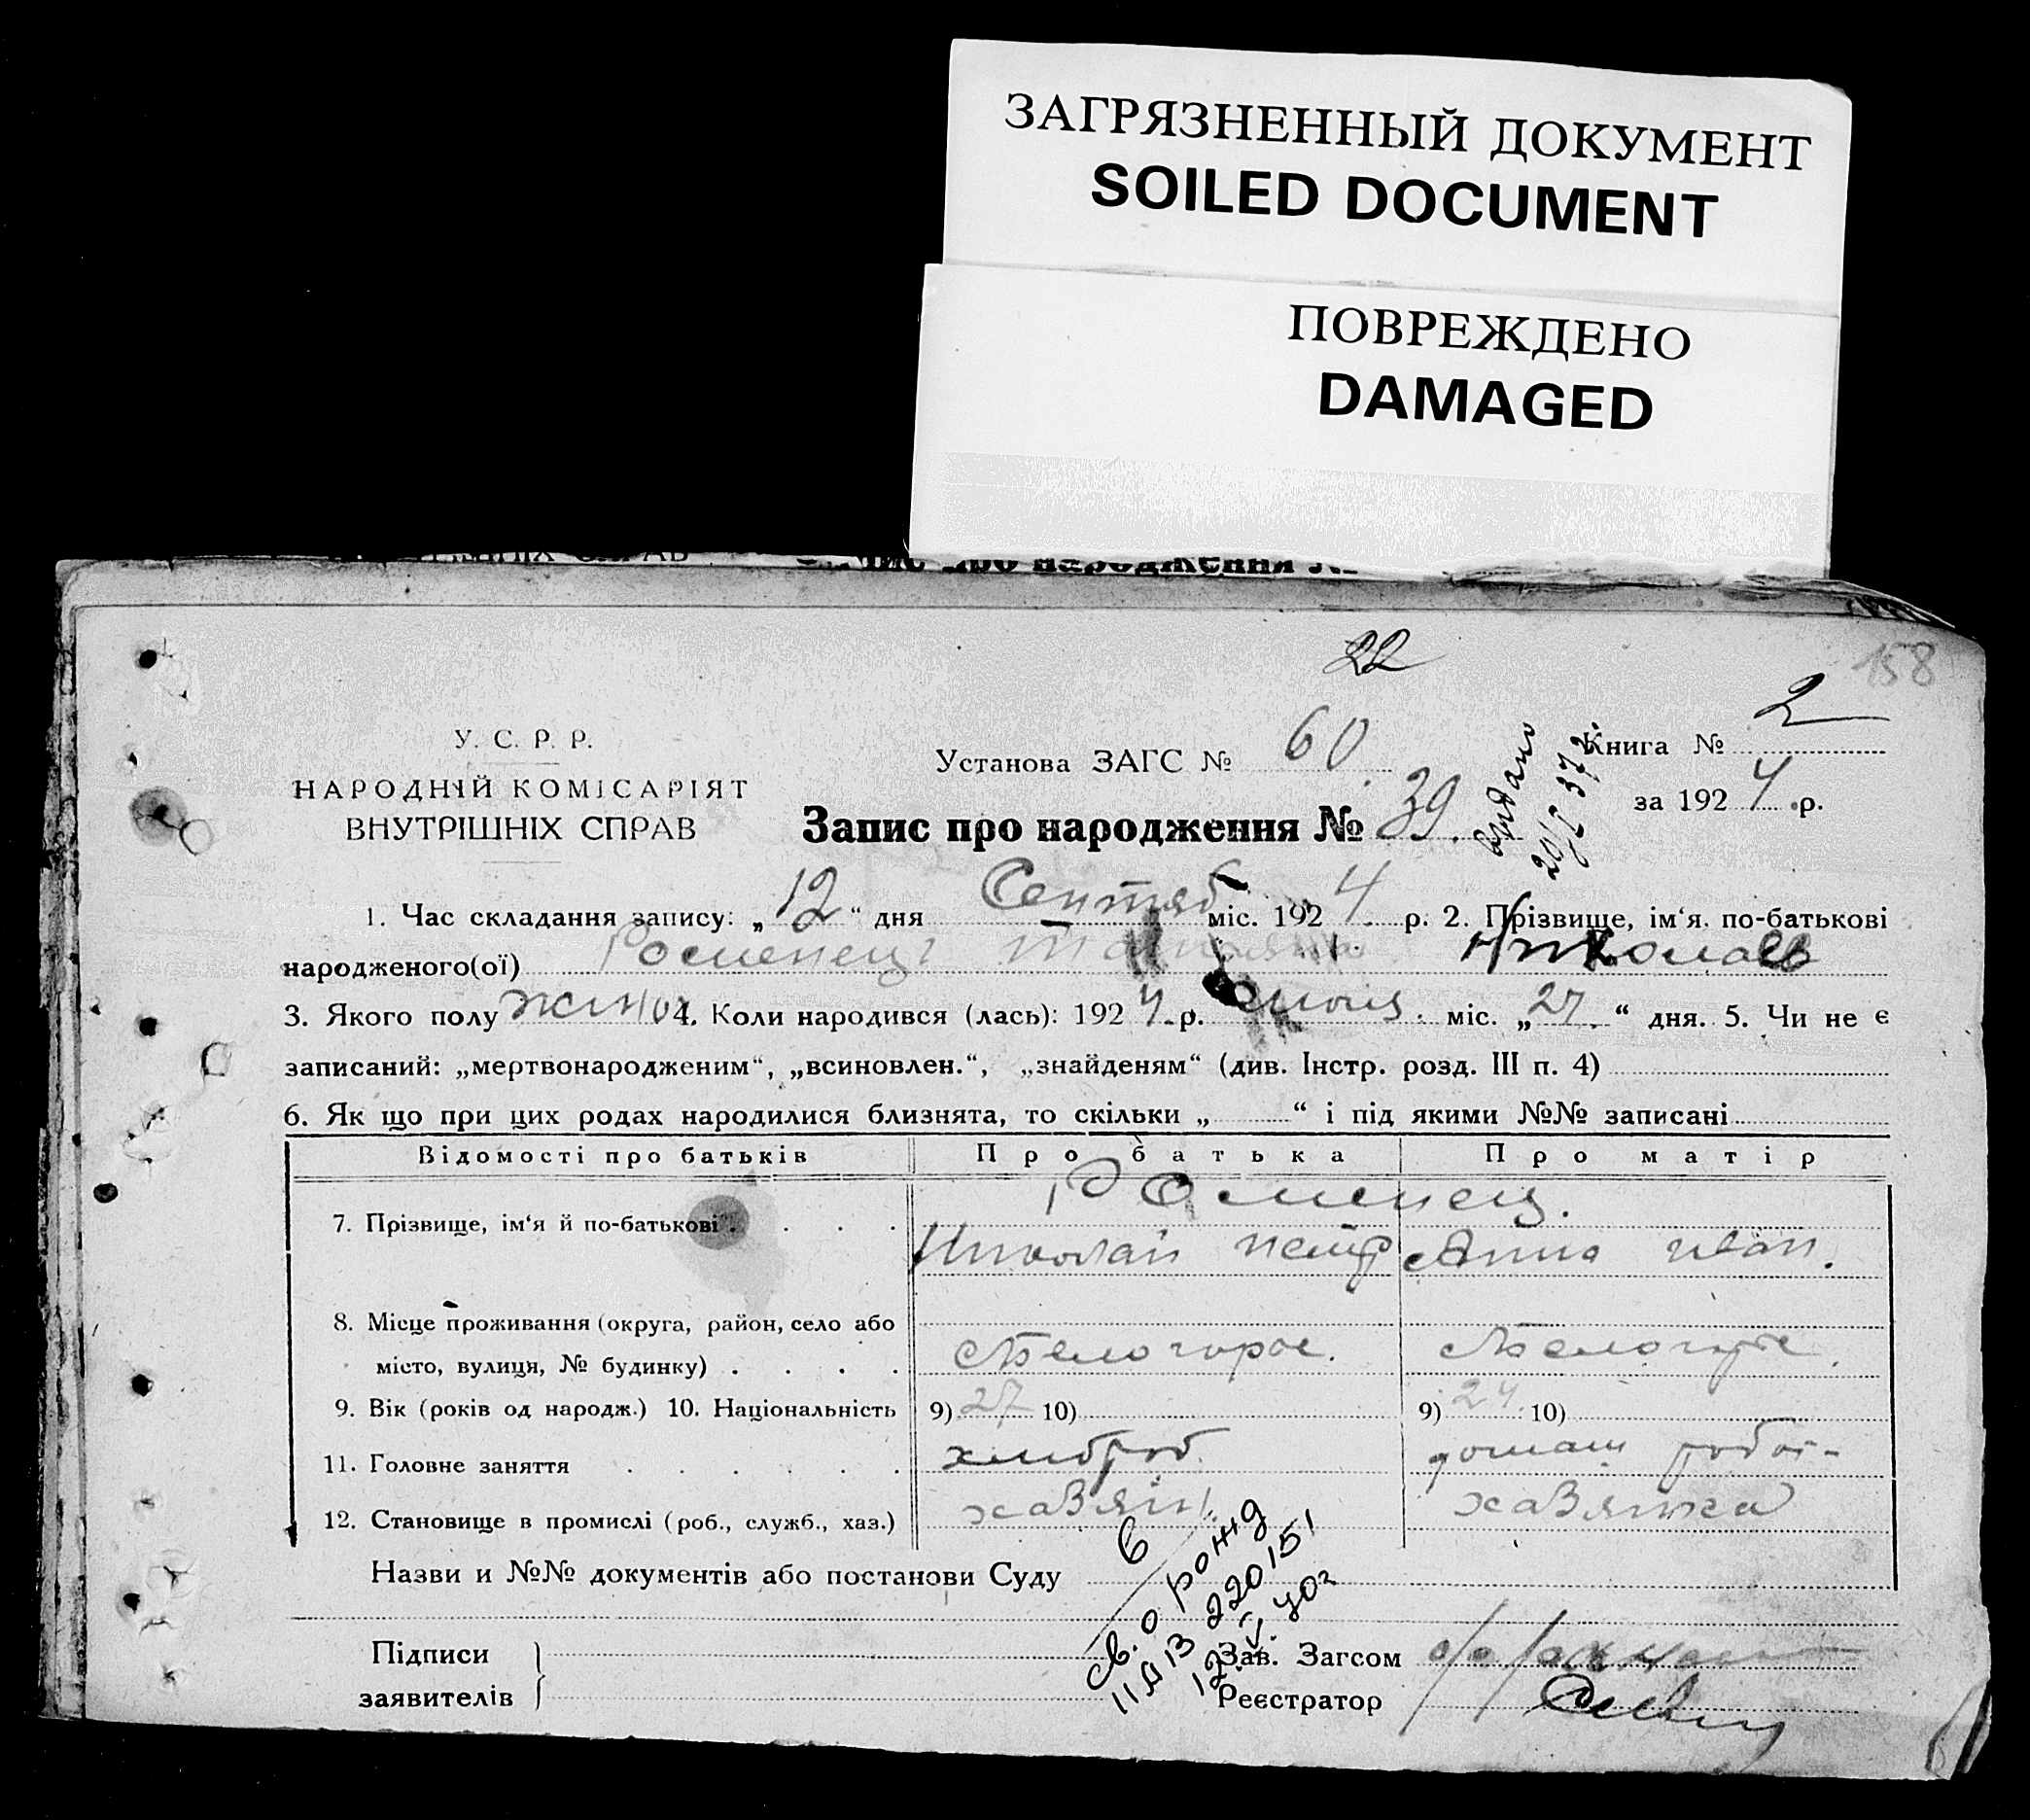 ЗАГРЯЗНЕННЫЙ ДОКУМЕНТ
SOILED DOCUMENT
ПОВРЕЖДЕНО
DAMAGED
22
158
У. С. Р. Р.
НАРОДНІЙ КОМІСАРІЯТ
ВНУТРІШНІХ СПРАВ
Установа ЗАГС № 60
Книга № 2
за 1924 р.
Запис про народження № 39.
видано
1. Час складання запису: „12“ дня Сентяб міс. 1924 р. 2. Прізвище, ім‘я, по-батькові
народженого(ої) Николаев
3. Якого полу жіноч 4. Коли народився (лась): 1924 р. міс. „27.“ дня. 5. Чи не є
записаний: „мертвонародженим“, „всиновлен.“, „знайденям“ (див. Інстр. розд. III п. 4)
6. Як що при цих родах народилися близнята, то скільки „ “ і під якими №№ записані
Відомості про батьків Про батька Про матір
7. Прізвище, ім‘я й по-батькові Роменец.
Николай Петр Анна Иван.
8. Місце проживання (округа, район, село або
місто, вулиця, № будинку) Белогорое. Белогорое.
9. Вік (років од народж.) 10. Національність 9) 27 10) 9) 24. 10)
11. Головне заняття хлібороб. домаш робот-
12. Становище в промислі (роб., служб., хаз.) хазяін хазяика
Назви и №№ документів або постанови Суду
св. о рожд
220151
12.V.40г
Підписи
заявителів
Зав. Загсом
Реєстратор